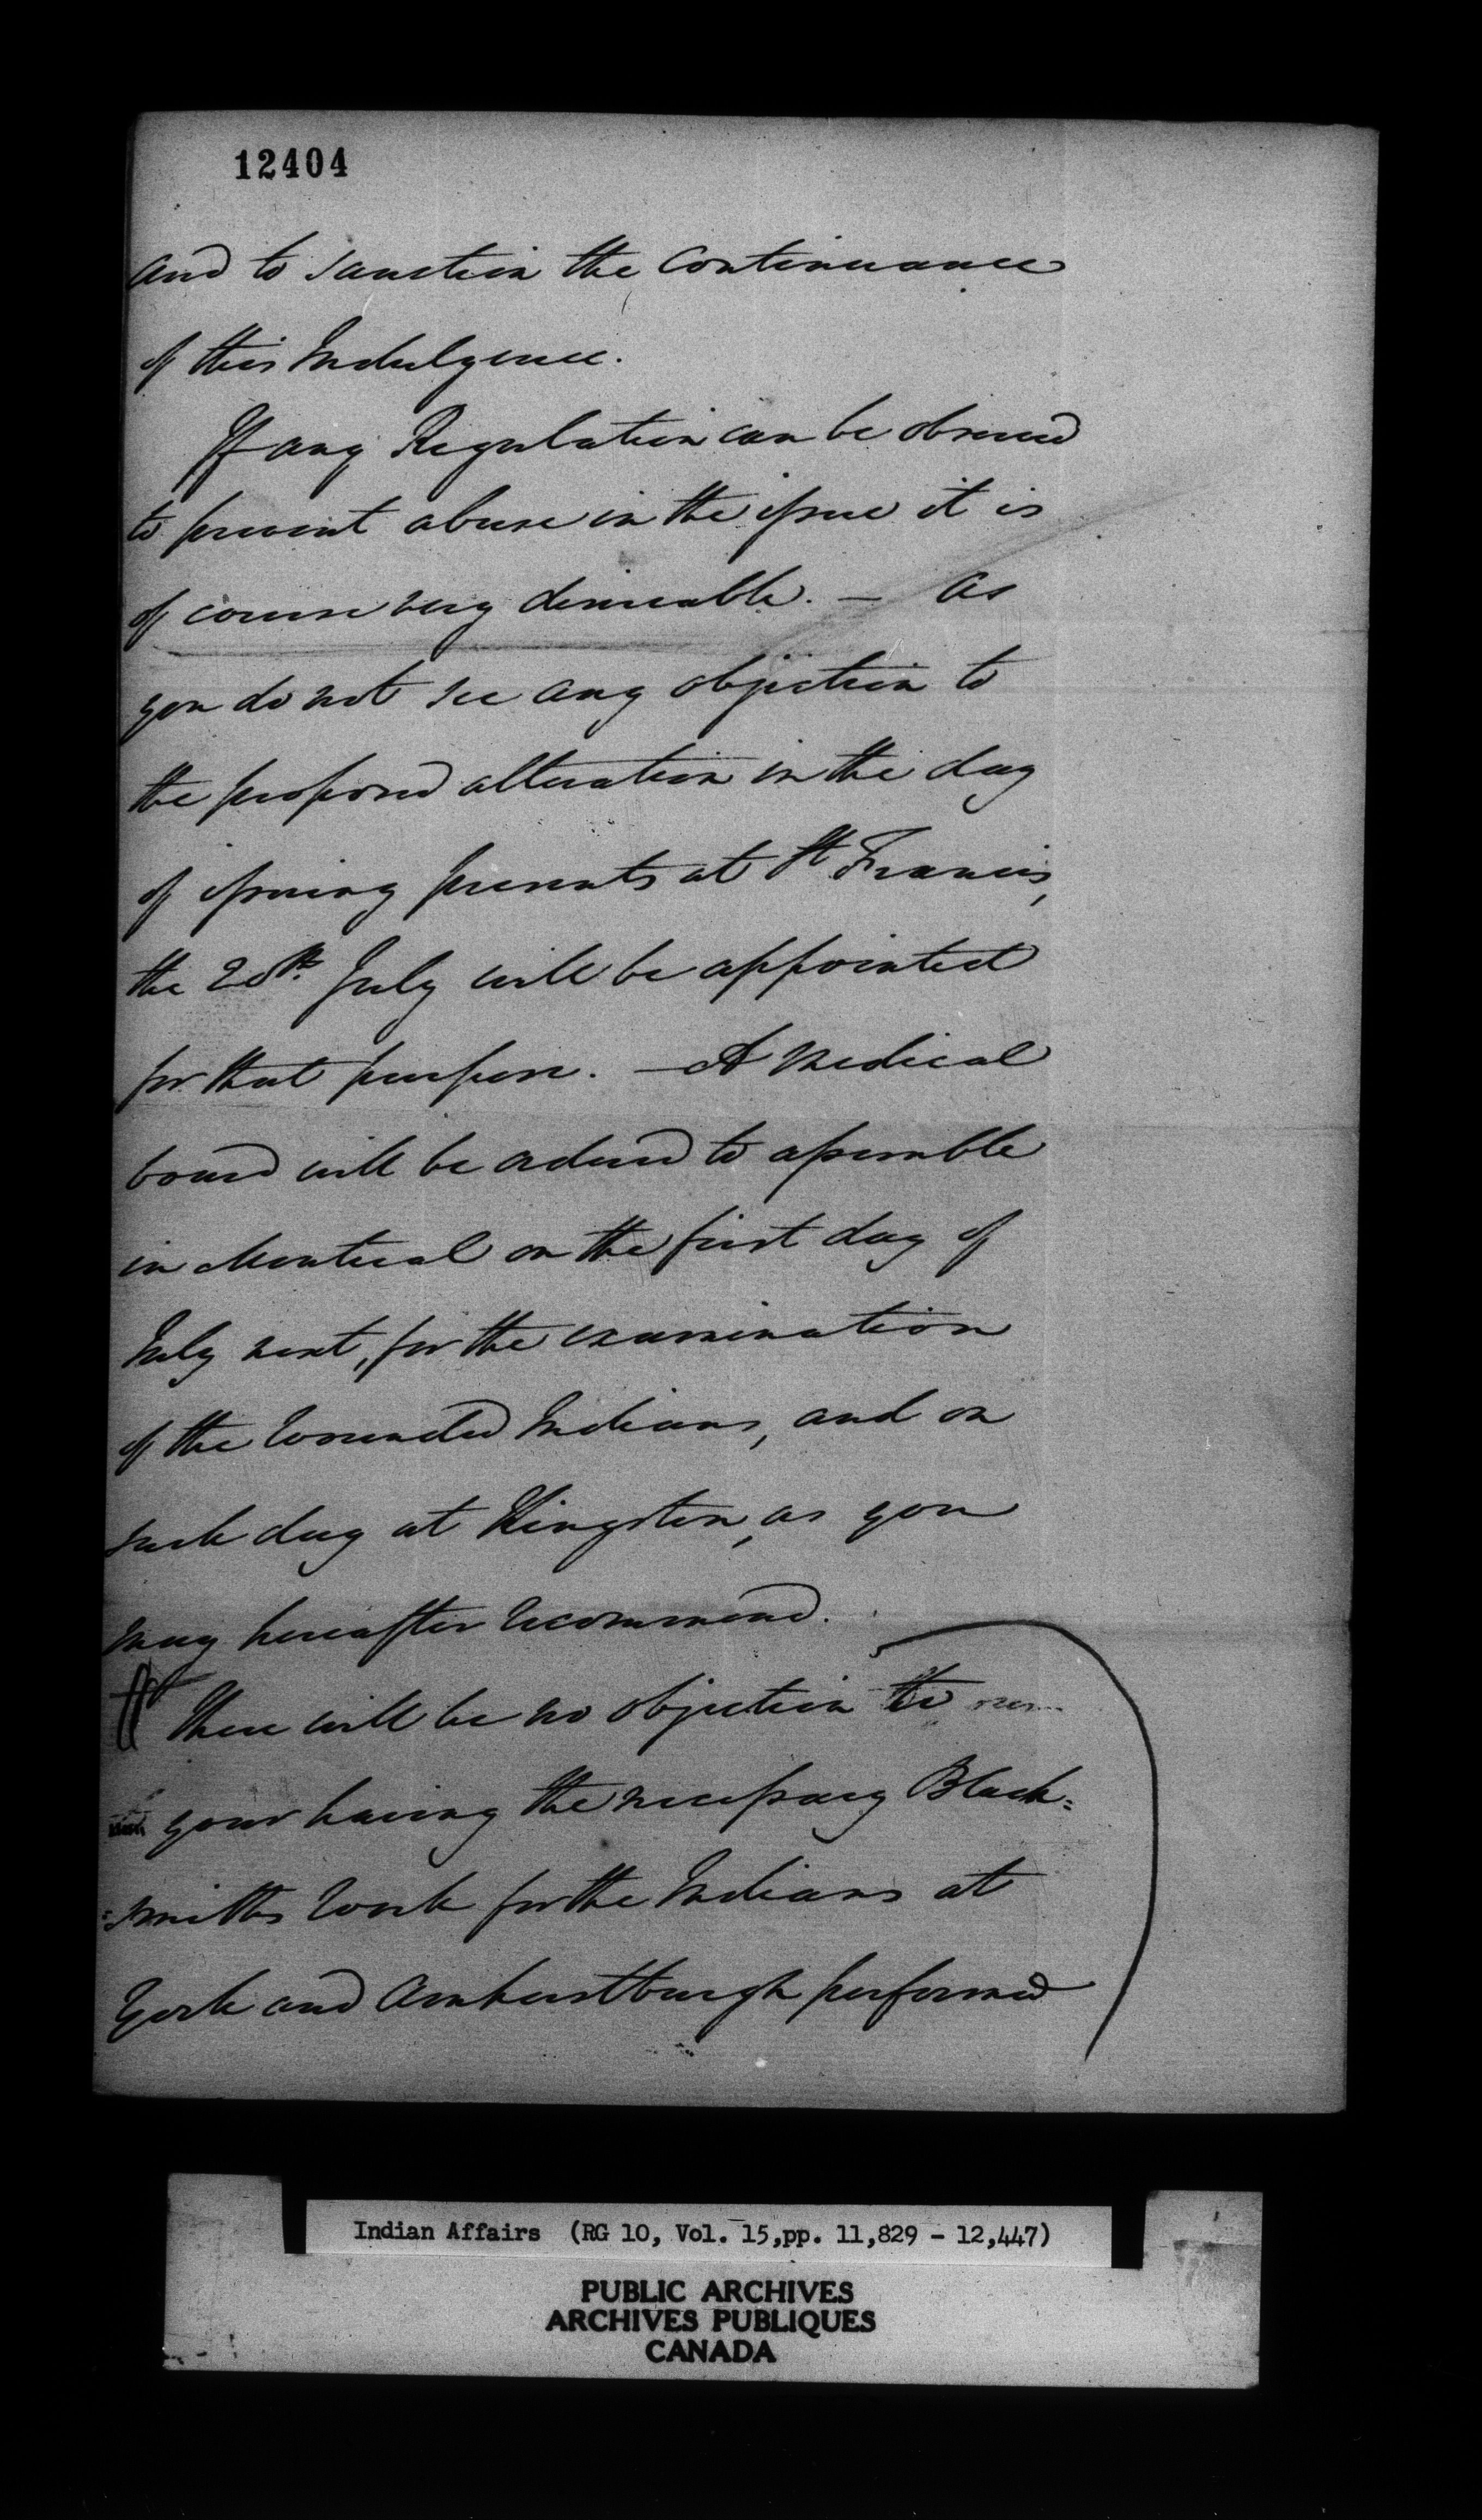 12404
and to sanction the continuance
of this Indulgence.
If any Regulation can be observed
to prevent abuse in the issue it is
of course very desireable. — As
you do not see any objection to
the proposed alteration in the day
of issuing presents at St Francis,
the 20th July will be appointed
for that purpose. — A Medical
board will be ordered to assemble
in Montreal on the first day of
July next, for the examination
of the Wounded Indians, and on
such day at Kingston, as you
may hereafter recommend.
There will be no objection to
your having the necessary Black=
=smiths work for the Indians at
York and Amherstburgh performed
Indian Affairs (RG 10, Vol. 15, pp. 11,829 - 12,447)
PUBLIC ARCHIVES
ARCHIVES PUBLIQUES
CANADA